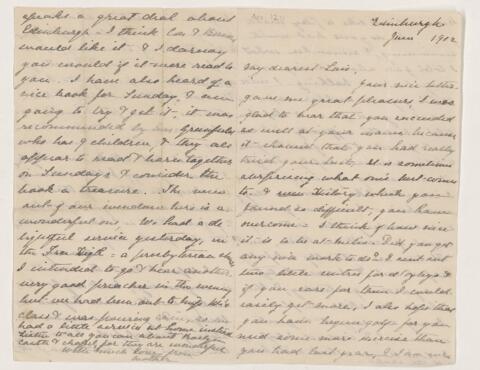 Edinburgh
June 1902
My dearest Lois.
Your nice letter
gave me great pleasure, I was
glad to hear that you succeeded
so well at your exams because
it showed that you had really
tried your best, it is sometimes
surprising what one's best comes
to, & now History which you
found so difficult, you have
overcome. I think & how nice
it is to be at
any nice work to do? I sent out
two little
if you care for them I could
easily get more, I also hope that
you have begun golf for you
need some more exercise than
you had last year, I
speaks a great deal about
Edinburgh - I think
would like it & I daresay
you would if it were read to
you. I have also heard of a
nice book for Sunday, I am
going to try & get it, it was
recommended by
who has 9 children, & they all
appear to read & have together
on Sundays & consider the
book a treasure. The view
out of our window here is a
wonderful one. We had a de-
lightful service yesterday, in
the Free High - a presbyterian
I intended to go & hear another
very good preacher in the evening
but we had been out to
class & was pouring rain, so we
had a little service at home instead
to see you can about Roslyn
castle & chapel for they are wonderful
With much love from
Mother